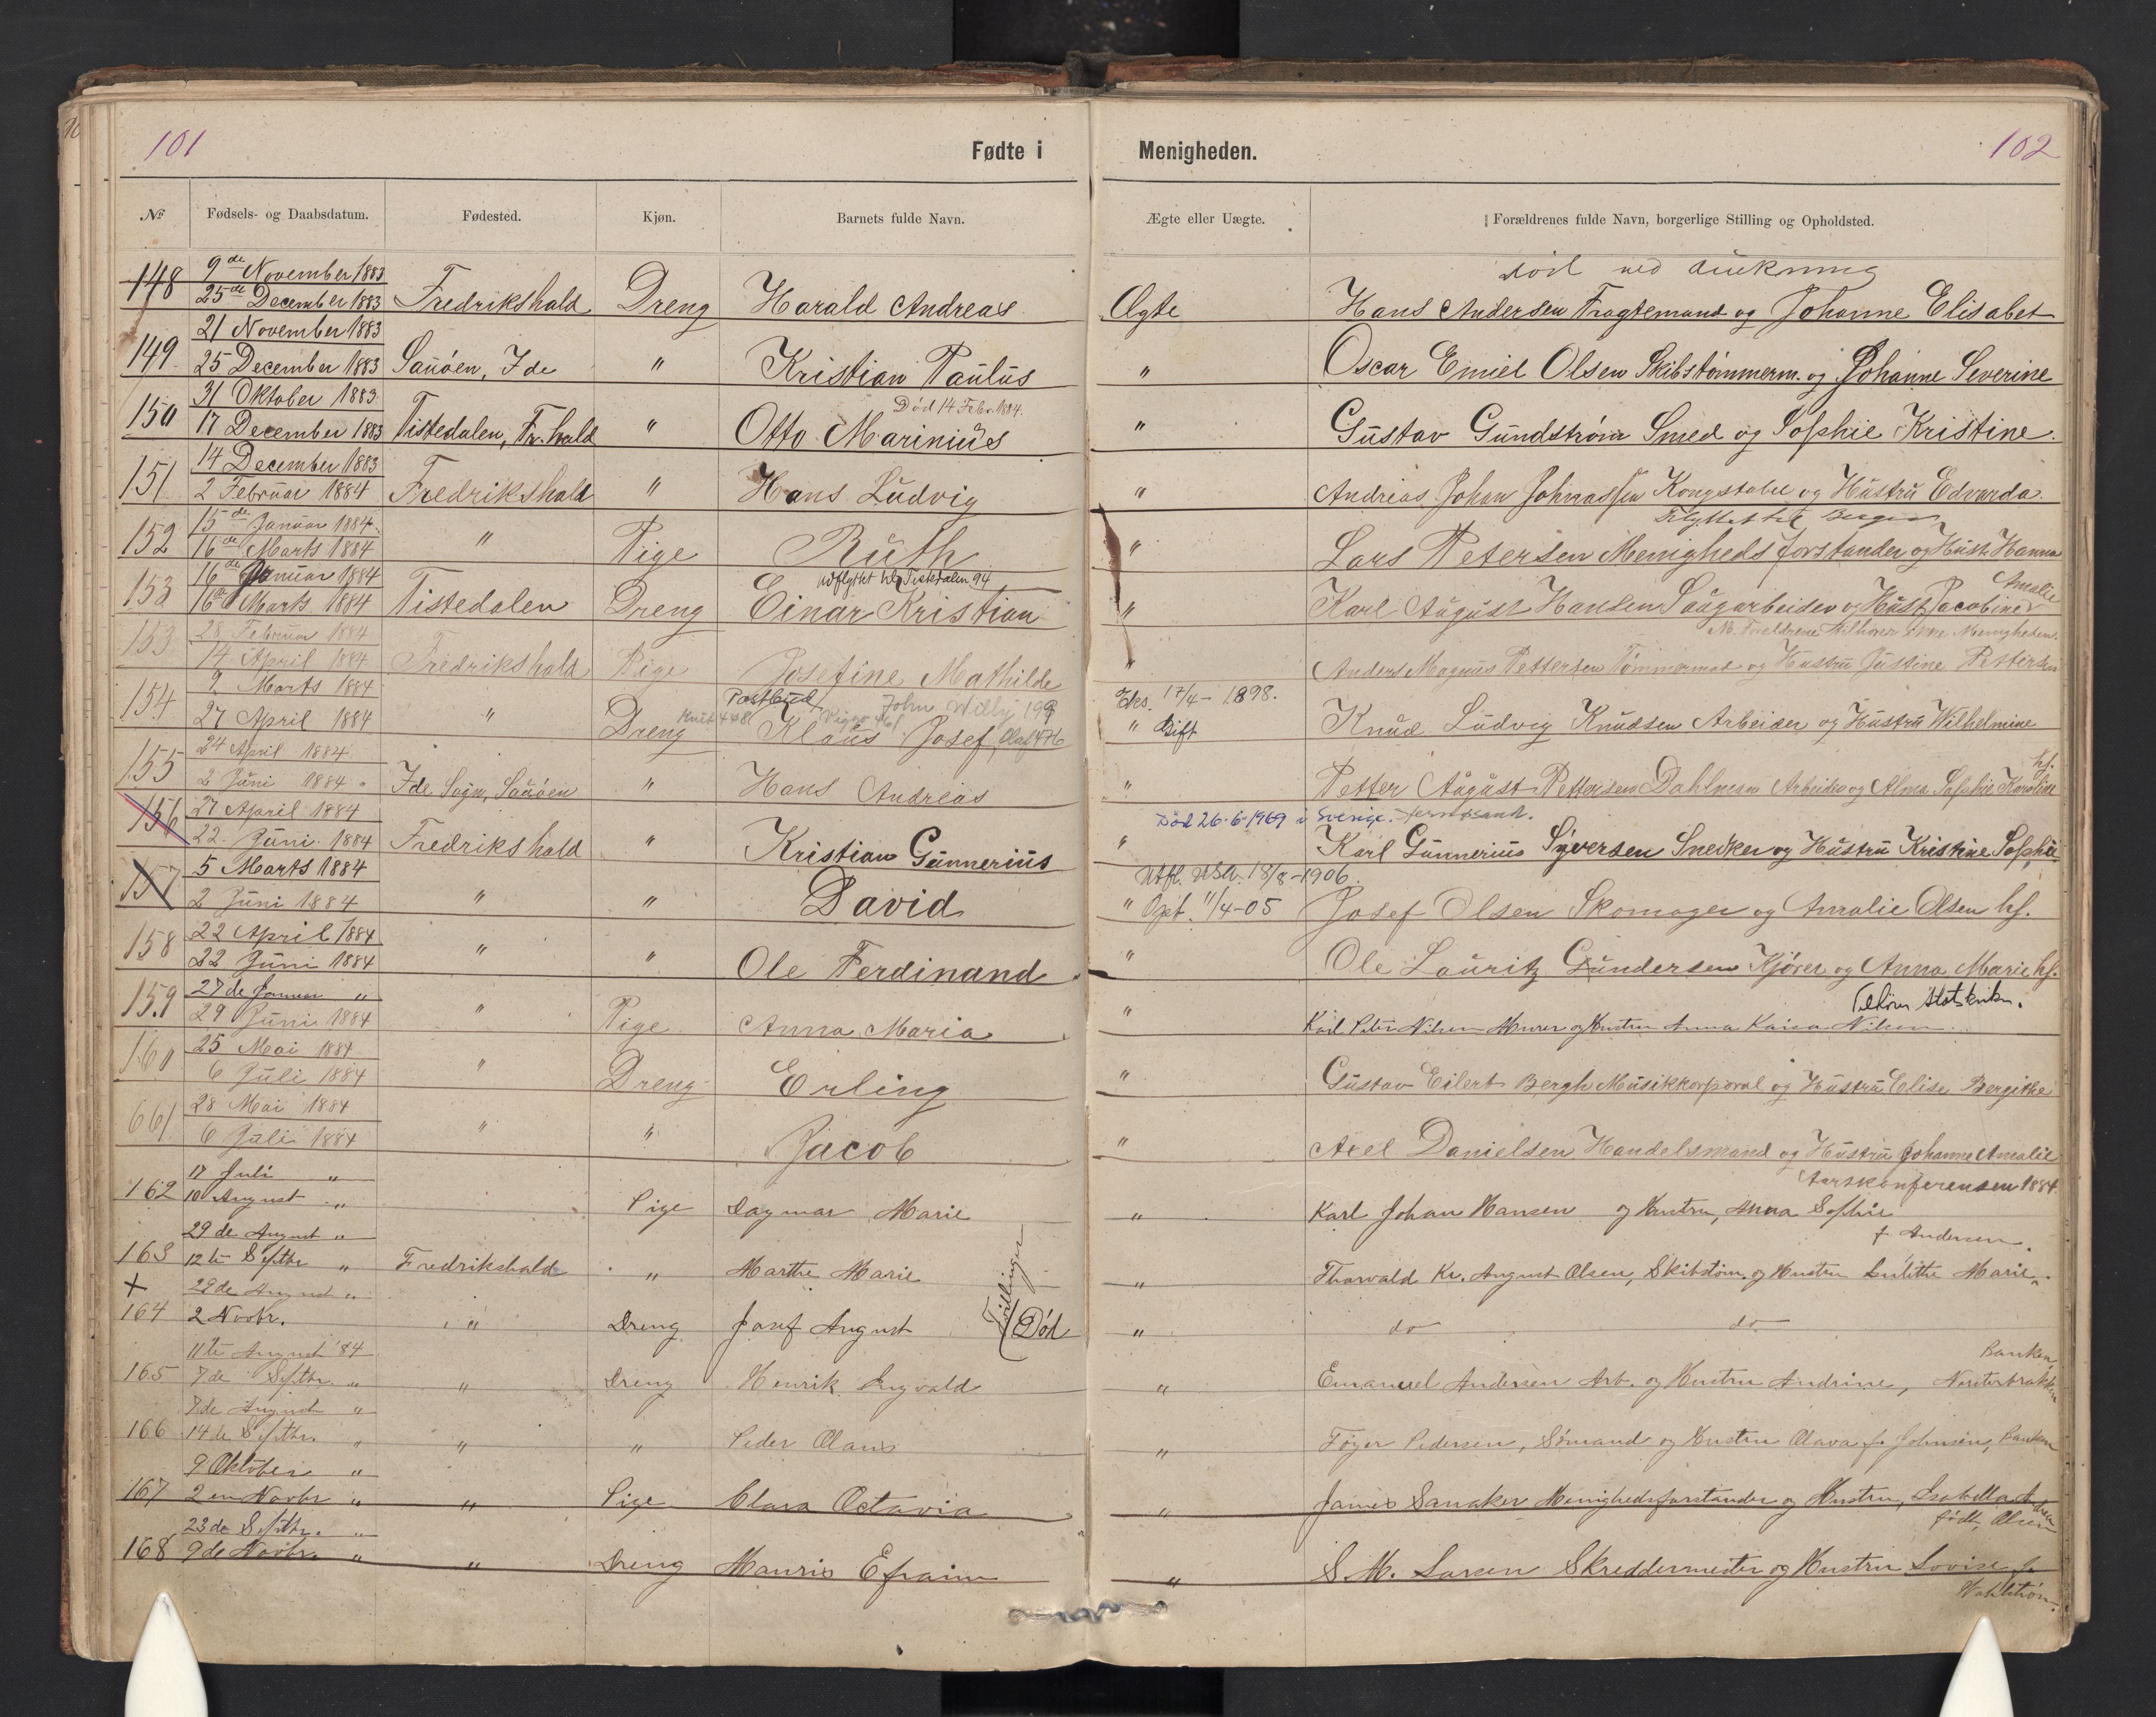 101
Fødte i Menigheden.
102
№ Fødsels- og Daabsdatum. Fødested. Kjøn. Barnets fulde Navn. Ægte eller Uægte. Forældrenes fulde Navn, borgerlige Stilling og Opholdsted.
9de November 1883
148 25de December 1883 Fredrikshald Dreng Harald Andreas Ægte Hans Andersen Fragtemand og Johanne Elisabet
21 November 1883
149 25 December 1883 Sauøen, Ide " Kristian Paulus " Oscar Emiel Olsen Skibstømmerm. og Johanne Severine
31 Oktober 1883
Død 14 Febr. 1884.
150 17 December 1883 Tistedalen, Fr.hald " Otto Marinius " Gustav Gundstrøm Smed og Sophie Kristine.
14 December 1883
151 2 Februar 1884 Fredrikshald " Hans Ludvig " Andreas Johan Johnassen Kongstabel og Hustru Edvarda.
Flyttet til Bergen
15de Januar 1884
152 16de Marts 1884 " Pige Ruth " Lars Petersen Menighedsforstander og Hust Hanna
Amalie
16de Januar 1884
udflyttet til Tistedalen 94
153 16de Marts 1884 Tistedalen Dreng Einar Kristian " Karl August Hansen Saugarbeider og Hust Jacobine
Nb. Foreldrene tilhører ikke Menigheden.
28 Februar 1884
153 14 April 1884 Fredrikshald Pige Josefine Mathilde " Anders Magnus Pettersen Tømmermand og Hustru Justine Pettersen
9 Marts 1884
Postbud John Willy 199
Eks. 17/4-1898.
154 27 April 1884 " Dreng Knut 448 Viggo 461 Klaus Josef Olaf 476 " Gift Knud Ludvig Knudsen Arbeider og Hustru Wilhelmine
24 April 1884
hf.
155 2 Juni 1884 Ide Sogn, Sauøen " Hans Andreas " Petter August Pettersen Dahlman Arbeider og Alma Sophie Karoline
Død 26-6-1969 i Sverige.
27 April 1884
156 22 Juni 1884 Fredrikshald " Kristian Gunnerius " Karl Gunnerius Syversen Snedker og Hustru Kristine Sophie
Utfl. USA. 18/8-1906.
5 Marts 1884
157 2 Juni 1884 " " David " Opt. 11/4-05 Josef Olsen Skomager og Amalie Olsen hf.
22 April 1884
158 22 Juni 1884 " " Ole Ferdinand " Ole Lauritz Gundersen Kjører og Anna Marie hf.
Tilhører Statskirken.
27de Januar "
159 29 Juni 1884 " Pige Anna Maria " Karl Peter Nilsen Murer og Hustru Anna Kaisa Nilsen
25 Mai 1884
160 6 Juli 1884 " Dreng Erling " Gustav Eilert Bergh Musikkorporal og Hustru Elise Bergithe
28 Mai 1884
661 6 Juli 1884 " " Jacob " Axel Danielsen Handelsmand og Hustru Johanne Amalie
Aarskonferensen 1884.
17 Juli "
162 10 August " Pige Dagmar Marie " Karl Johan Hansen og Hustru, Anna Sophie
f. Andersen.
29de August "
163 12te Septbr " Fredrikshald " Marthe Marie " Thorvald Kr. August Olsen, Skibstøm. og Hustru Marie
Tvillinger
29de August "
164 2 Novbr. " Dreng Josef August Død " do do
11te August '84
Banken,
165 7de Septbr. " " Dreng Henrik Ingvald " Emanuel Andersen Arb. og Hustru Andrine,
7de August "
166 14de Septbr. " " " Peder Olaus " Tøger Pedersen, Sømand og Hustru Olava f. Johnsen, Banken
9 Oktober "
167 2en Novbr " " Pige Clara Octavia " James Sanaker Menighedsforstander og Hustru, Isabella
født, Olsen
23de Septbr. "
168 9de Novbr. " " Dreng Mauris Efraim " S. M. Larsen Skreddermester og Hustru Lovise f.
Wahlstrøm.